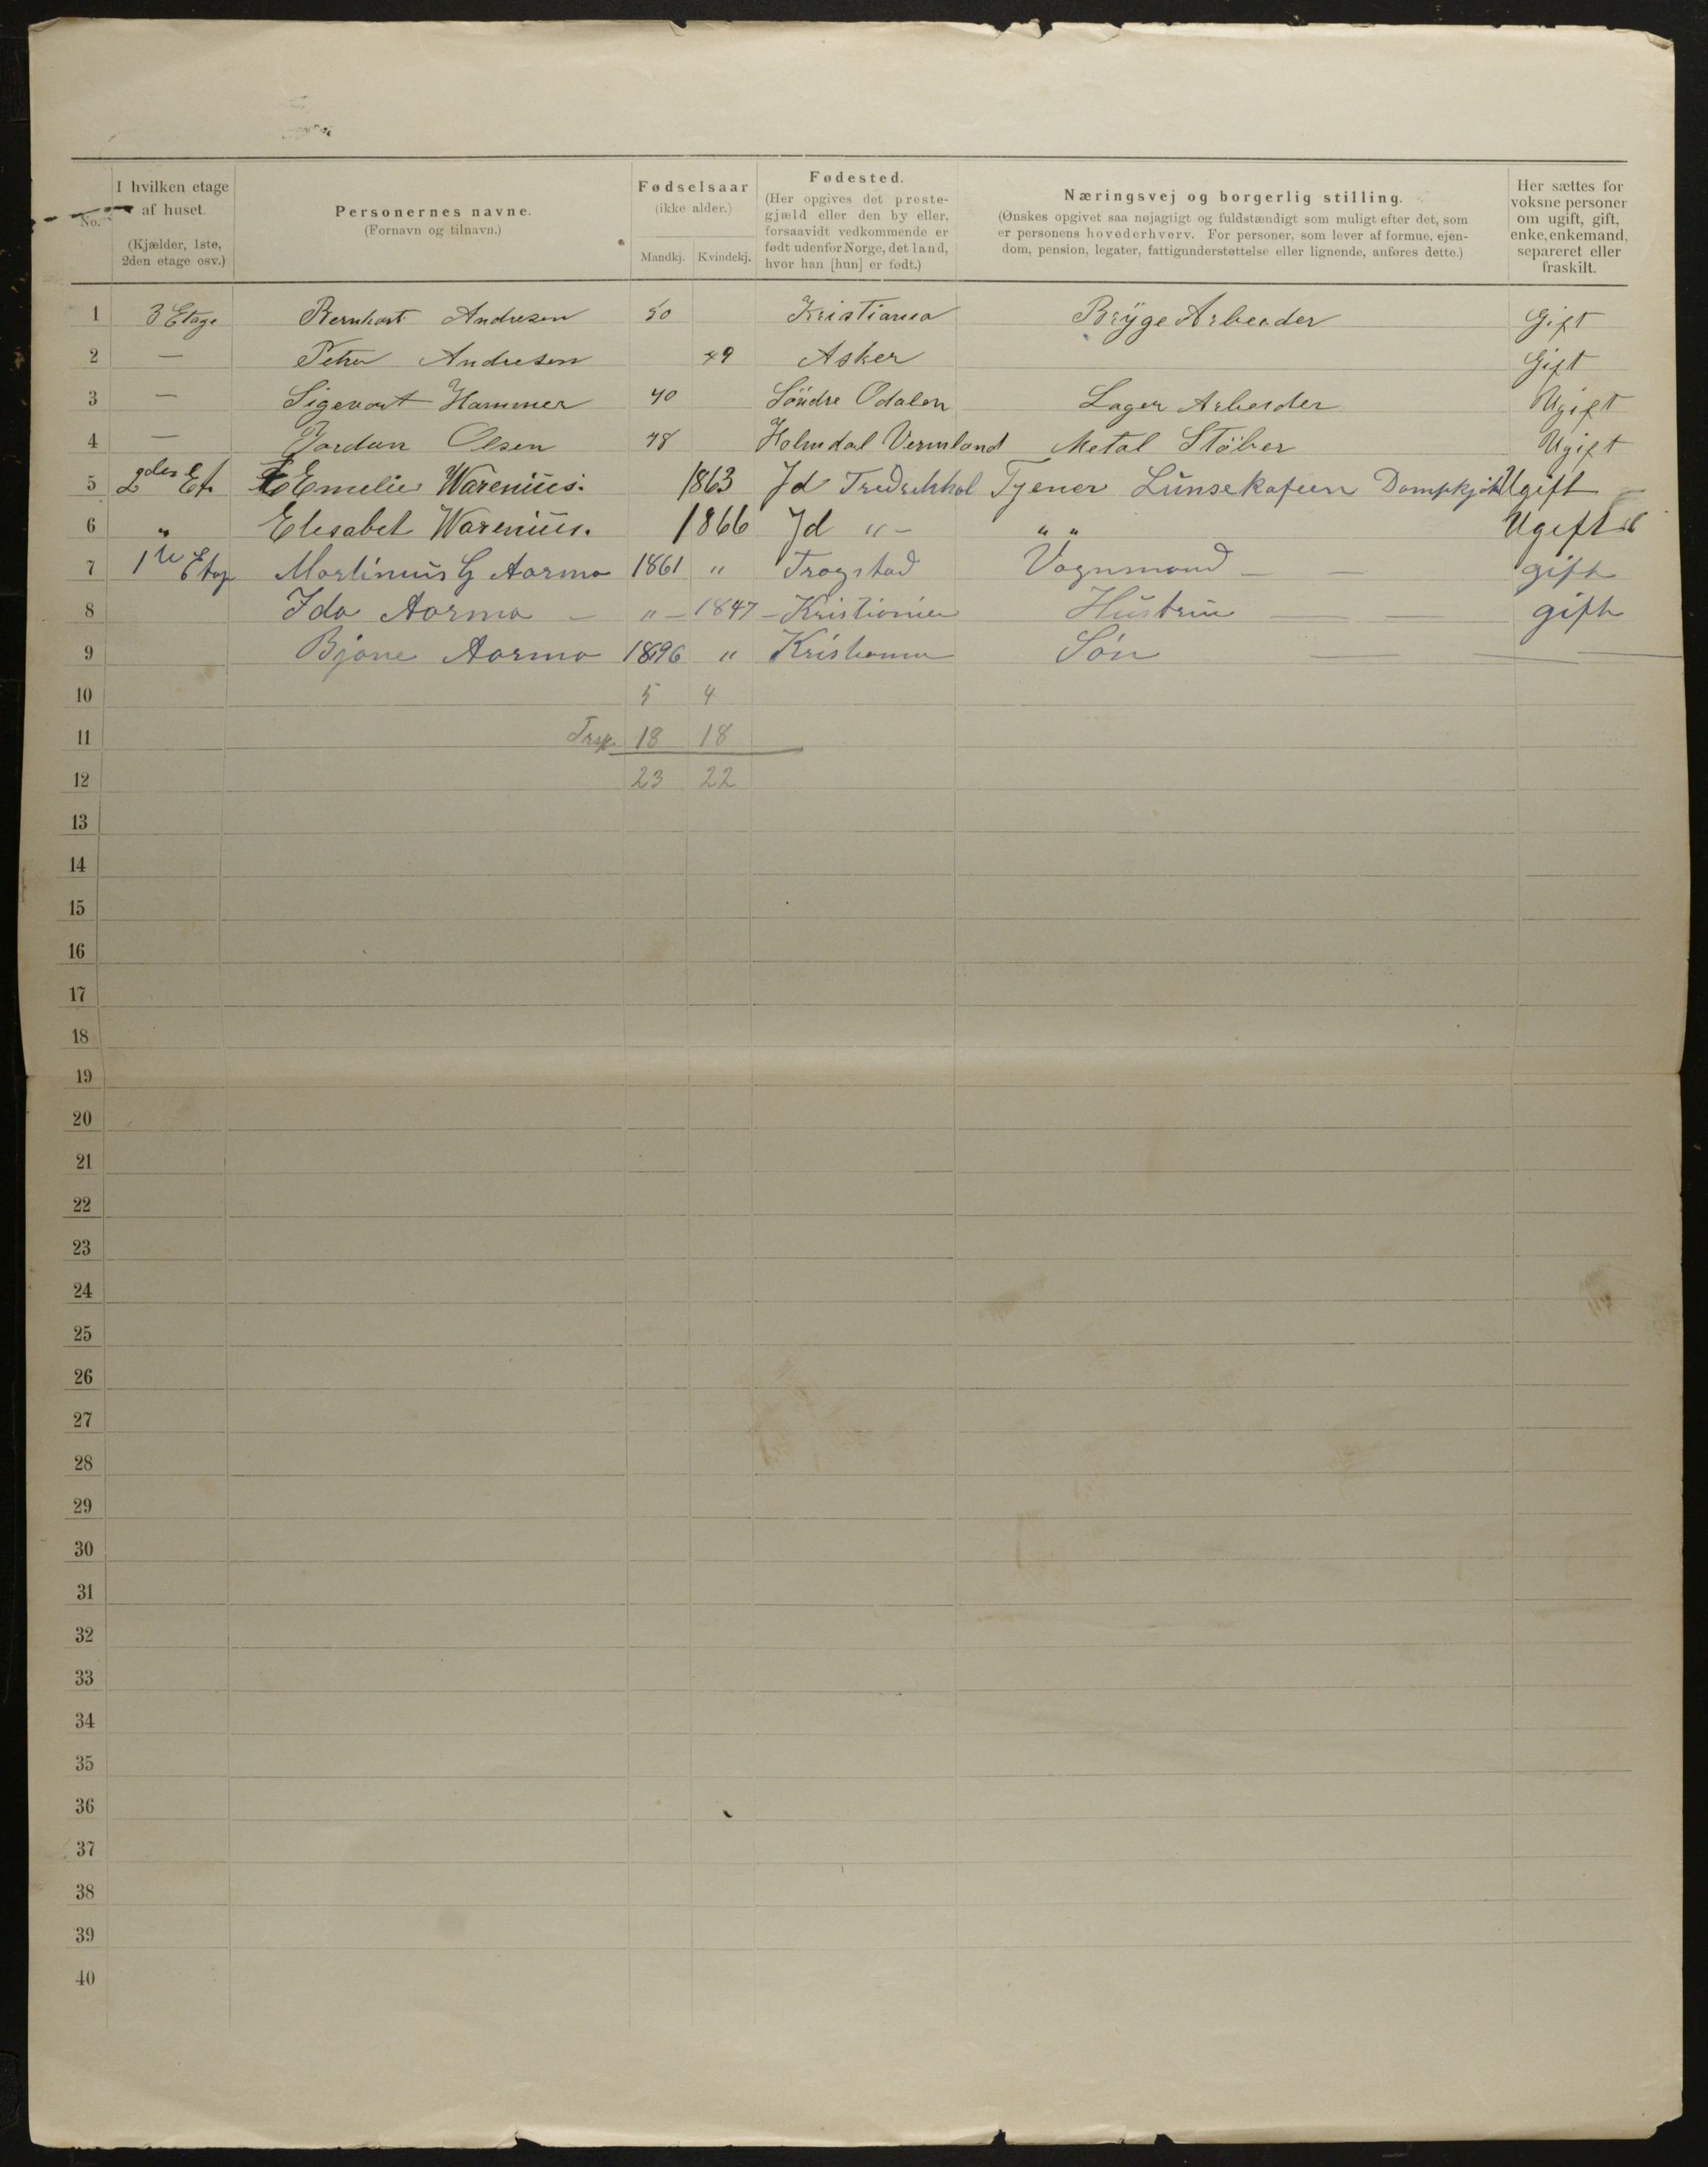 No. I hvilken etage af huset. (Kjælder, 1ste, 2den etage osv.) Personernes navne. (Fornavn og tilnavn.) Fødselsaar (ikke alder.) Mandkj. Kvindekj. Fødested. (Her opgives det prestegjæld eller den by eller, forsaavidt vedkommende er født udenfor Norge, det land, hvor han [hun] er født.) Næringsvej og borgerlig stilling. (Ønskes opgivet saa nøjagtigt og fuldstændigt som muligt efter det, som er personens hovederhverv. For personer, som lever af formue, ejendom, pension, legater, fattigunderstøttelse eller lignende, anføres dette.) Her sættes for voksne personer om ugift, gift, enke, enkemand, separeret eller fraskilt.
1 3 Etage Bernhart Andresen 50 Kristiania Bryge Arbeider Gift
2 — Petra Andresen 49 Asker Gift
3 — Sigevart Hammer 40 Söndre Odalen Lager Arbeider Ugift
4 — Olsen 48 Holmdal Vermland Metal Stöber Ugift
5 2den Et. Emelie Warenius. 1863 Jd Tjener Dampkjøk Ugift
6 „ Elesabet Warenius. 1866 Jd „ - „ „ Ugift
7 1te Etag Martinus G Aarmo 1861 „ Trogstad Vognmand — — gift
8 Ida Aarmo — „ — 1847 — Kristiania Hustru — — gift
9 Bjane Aarmo 1896 „ Kristiania Søn — — —
10 5 4
11 Trsp. 18 18
12 23 22
13
14
15
16
17
18
19
20
21
22
23
24
25
26
27
28
29
30
31
32
33
34
35
36
37
38
39
40